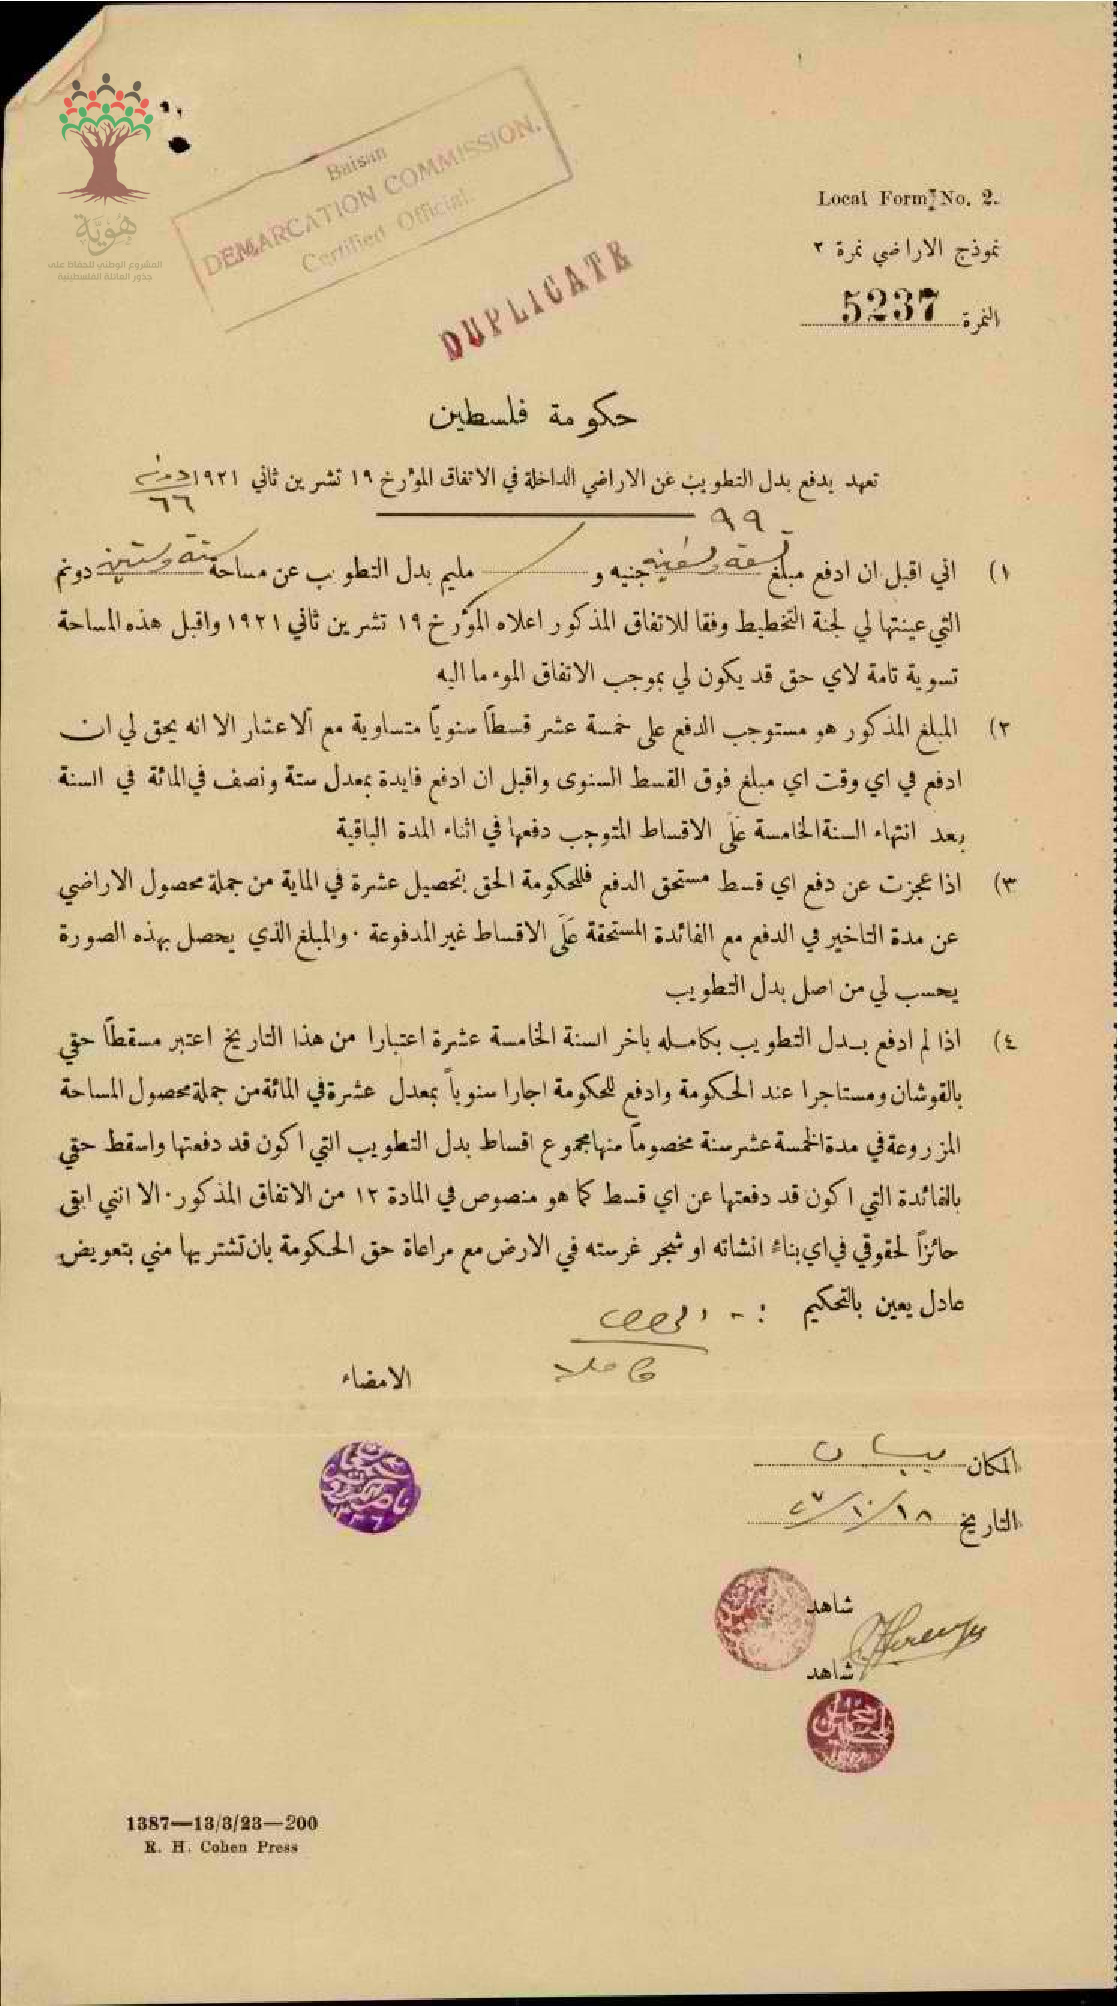 Baisan
DEMARCATION COMMISSION.
Certified Official.
DUPLICATE
هُويَّة
المشروع الوطني للحفاظ على
جذور العائلة الفلسطينية
Local Form No. 2.
نموذج الاراضي نمرة ٢
النمرة 5237
حكومة فلسطين
تعهد بدفع بدل التطويب عن الاراضي الداخلة في الاتفاق المؤرخ ١٩ تشرين ثاني ١٩٢١
دونم
٦٦
٩٩
١) اني اقبل ان ادفع مبلغ تسعة وتسعين جنيه و مليم بدل التطويب عن مساحة ستة وستين دونم
التي عينتها لي لجنة التخطيط وفقا للاتفاق المذكور اعلاه المؤرخ ١٩ تشرين ثاني ١٩٢١ واقبل هذه المساحة
تسوية تامة لاي حق قد يكون لي بموجب الاتفاق الموء ما اليه
٢) المبلغ المذكور هو مستوجب الدفع على خمسة عشر قسطاً سنوياً متساوية مع الاعشار الا انه يحق لي ان
ادفع في اي وقت اي مبلغ فوق القسط السنوى واقبل ان ادفع فايدة بمعدل ستة ونصف في المائة في السنة
بعد انتهاء السنة الخامسة عَلَى الاقساط المتوجب دفعها في اثناء المدة الباقية
٣) اذا عجزت عن دفع اي قسط مستحق الدفع فللحكومة الحق بتحصيل عشرة في الماية من جملة محصول الاراضي
عن مدة التاخير في الدفع مع الفائدة المستحقة عَلَى الاقساط غير المدفوعة . والمبلغ الذي يحصل بهذه الصورة
يحسب لي من اصل بدل التطويب
٤) اذا لم ادفع بدل التطويب بكامله باخر السنة الخامسة عشرة اعتبارا من هذا التاريخ اعتبر مسقطاً حقي
بالقوشان ومستاجرا عند الحكومة وادفع للحكومة اجارا سنوياً بمعدل عشرة في المائة من جملة محصول المساحة
المزروعة في مدة الخمسة عشر سنة مخصوماً منها مجموع اقساط بدل التطويب التي اكون قد دفعتها واسقط حقي
بالفائدة التي اكون قد دفعتها عن اي قسط كما هو منصوص في المادة ١٢ من الاتفاق المذكور . الا انني ابقى
حائزاً لحقوقي في اي بناء انشاته او شجر غرسته في الارض مع مراعاة حق الحكومة بان تشتريها مني بتعويض
عادل يعين بالتحكيم :-
الامضاء
المكان بيسان
التاريخ ١٨/١٠/٢٧
شاهد
شاهد
1387—13/3/23—200
R. H. Cohen Press